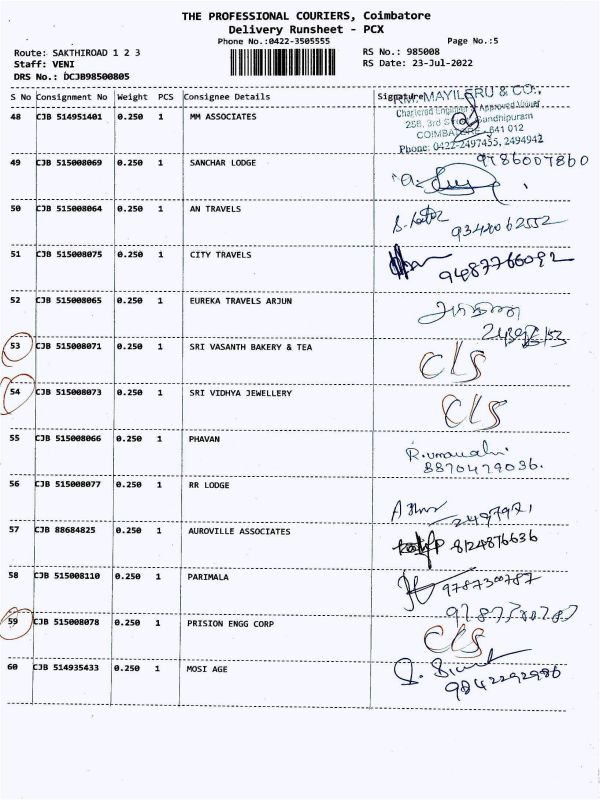 THE PROFESSIONAL COURIERS, Coimbatore
Delivery Runsheet - PCX
Phone No.:0422-3505555 Page No.:5
Route: SAKTHIROAD 1 2 3 RS No.: 985008
Staff: VENI RS Date: 23-Jul-2022
DRS No.: DCJB98500805
S No Consignment No Weight PCS Consignee Details Signature
RM. MAYILERU & CO.,
Chartered Engineer & Approved Valuer
48 CJB 514951401 0.250 1 MM ASSOCIATES
258, 3rd Street Gandhipuram
COIMBATORE - 641 012
Phone: 0422-2497435, 2494942
49 CJB 515008069 0.250 1 SANCHAR LODGE 9786007860
50 CJB 515008064 0.250 1 AN TRAVELS
9342062552
51 CJB 515008075 0.250 1 CITY TRAVELS
9487766092
52 CJB 515008065 0.250 1 EUREKA TRAVELS ARJUN
53 CJB 515008071 0.250 1 SRI VASANTH BAKERY & TEA CLS
54 CJB 515008073 0.250 1 SRI VIDHYA JEWELLERY CLS
55 CJB 515008066 0.250 1 PHAVAN
8870479036.
56 CJB 515008077 0.250 1 RR LODGE
2497921
57 CJB 88684825 0.250 1 AUROVILLE ASSOCIATES 8124876636
58 CJB 515008110 0.250 1 PARIMALA 9787300787
9787300787
59 CJB 515008078 0.250 1 PRISION ENGG CORP CLS
60 CJB 514935433 0.250 1 MOSI AGE
9842292986